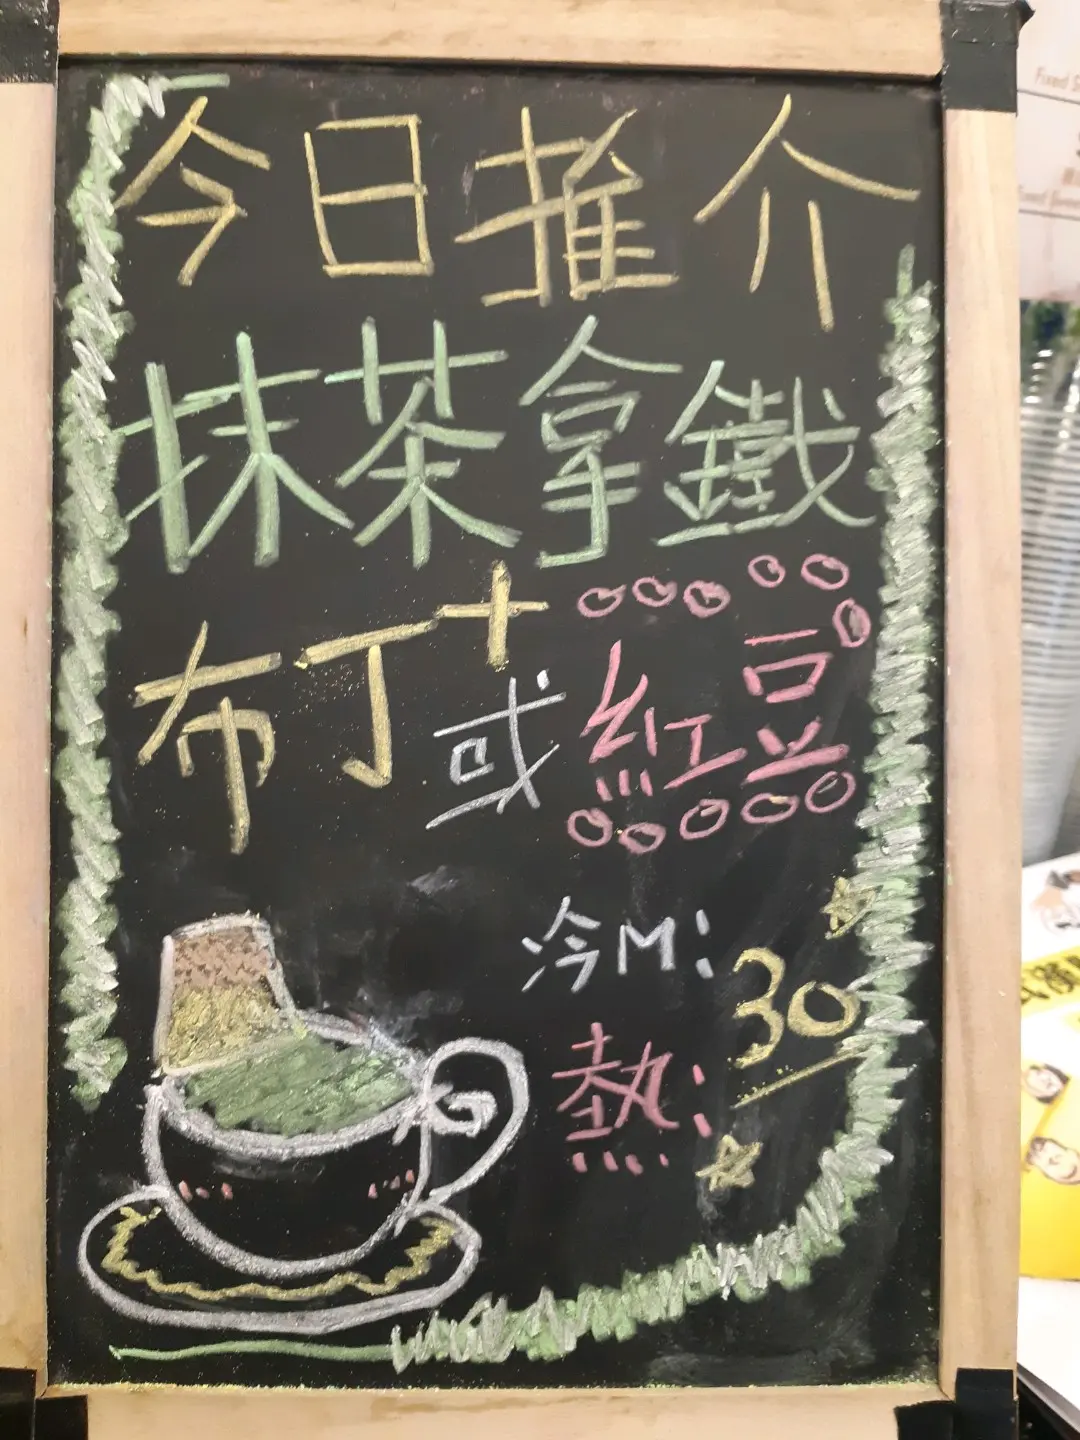 今日推介
抹茶拿鐵
+
布丁或紅豆
冷M:
30
熱:
Fixed S